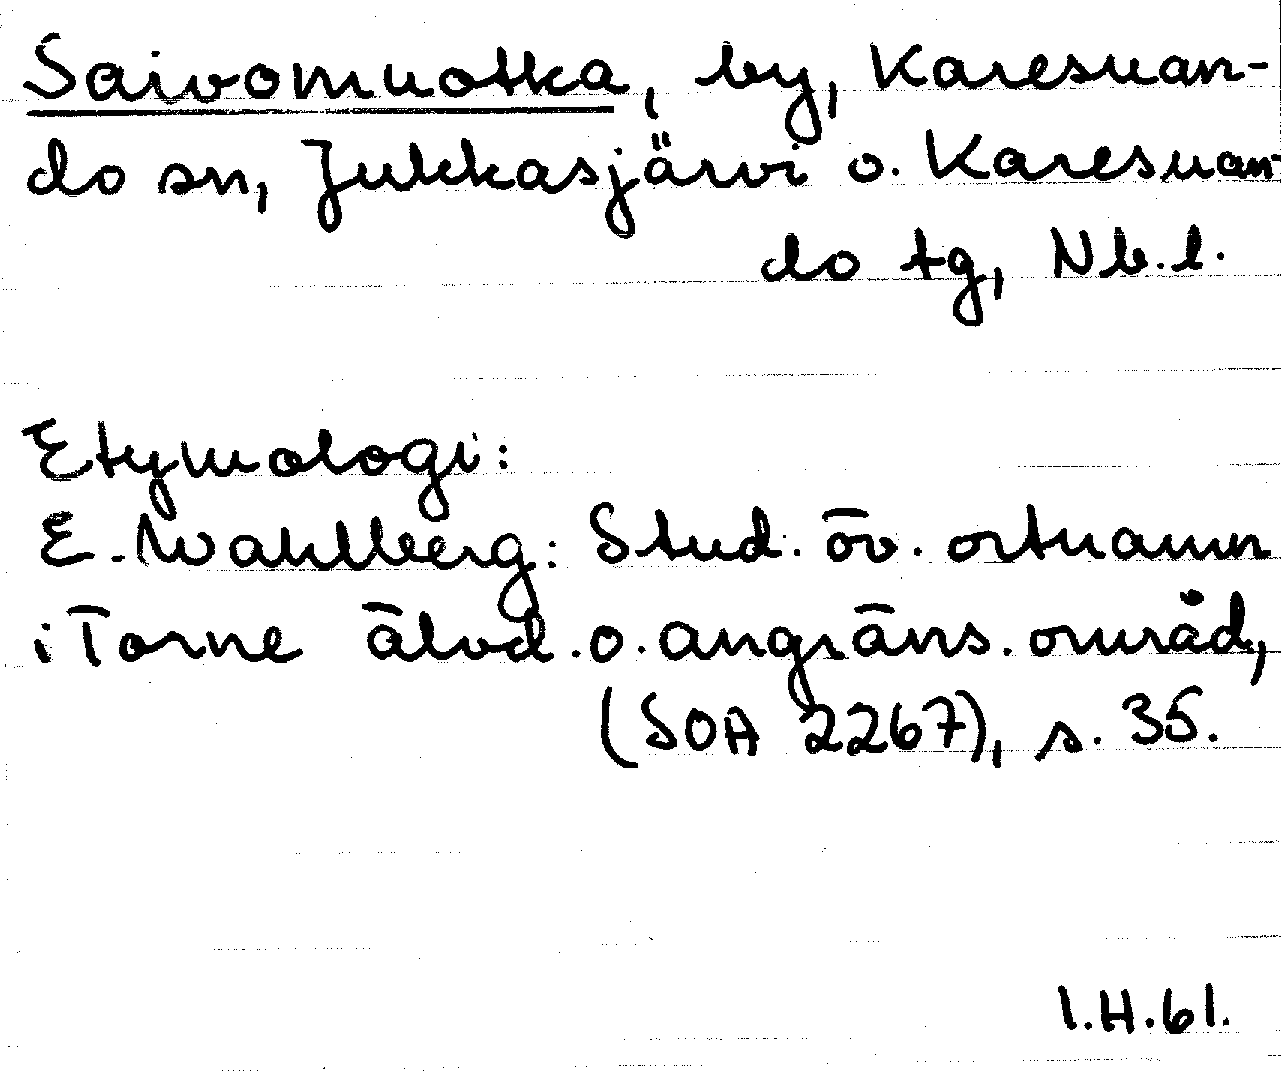 Saivomuotka, by, Karesuan-
do sn, Jukkasjärvi o. Karesuan-
do tg, Nb.l.
Etymologi:
E. Wahlberg: Stud. öv. ortnamn
i Torne älvd. o. angräns. områd,
(SOA 2267), s. 35.
I.H.61.